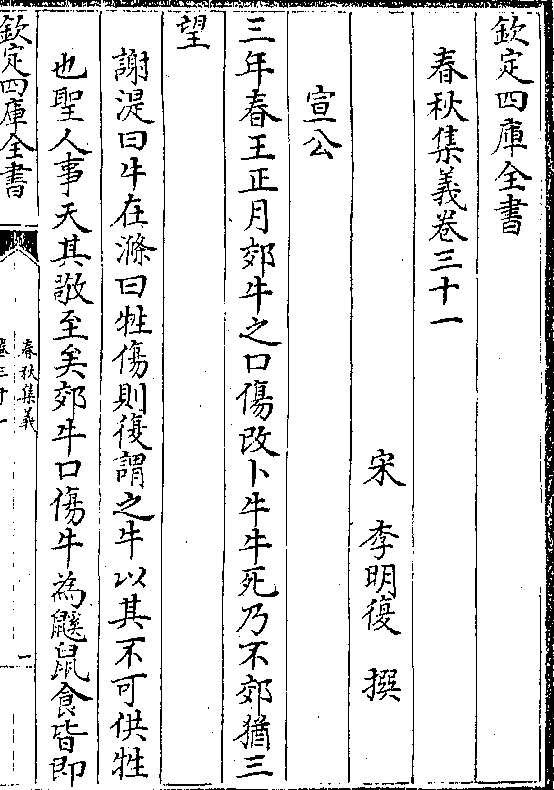 欽定四庫全書
春秋集義卷三十一
宋 李明復 撰
宣公
三年春王正月郊牛之口傷改卜牛牛死乃不郊猶三
望
謝湜曰牛在滌曰牲傷則復謂之牛以其不可供牲
也聖人事天其敬至矣郊牛口傷牛為鼷鼠食皆即
欽定四庫全書
春秋集義
卷三十一
一